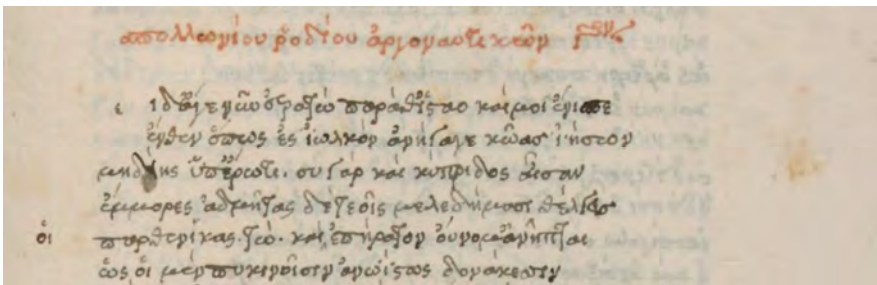 ἀπολλωνίου ῥοδίου ἀργοναυτικῶν
εἰ δ' ἄγε νῦν ἐρατὼ παρά θ' ἵστασο καί μοι ἔνισπε
ἔνθεν ὅπως ἐς ἰωλκὸν ἀνήγαγε κῶας ἰήσων
μηδείης ὑπ' ἔρωτι. σὺ γὰρ καὶ κύπριδος αἶσαν
ἔμμορες ἀδμῆτας δὲ τεοῖς μελεδήμασι θέλγεις
παρθενικάς. τῶ. καὶ ἐπήρατον οὔνομ' ἀνῆπται
οἱ
ὣς οἱ μὲν πυκινοῖσιν ἀνωίστως δονάκεσσιν